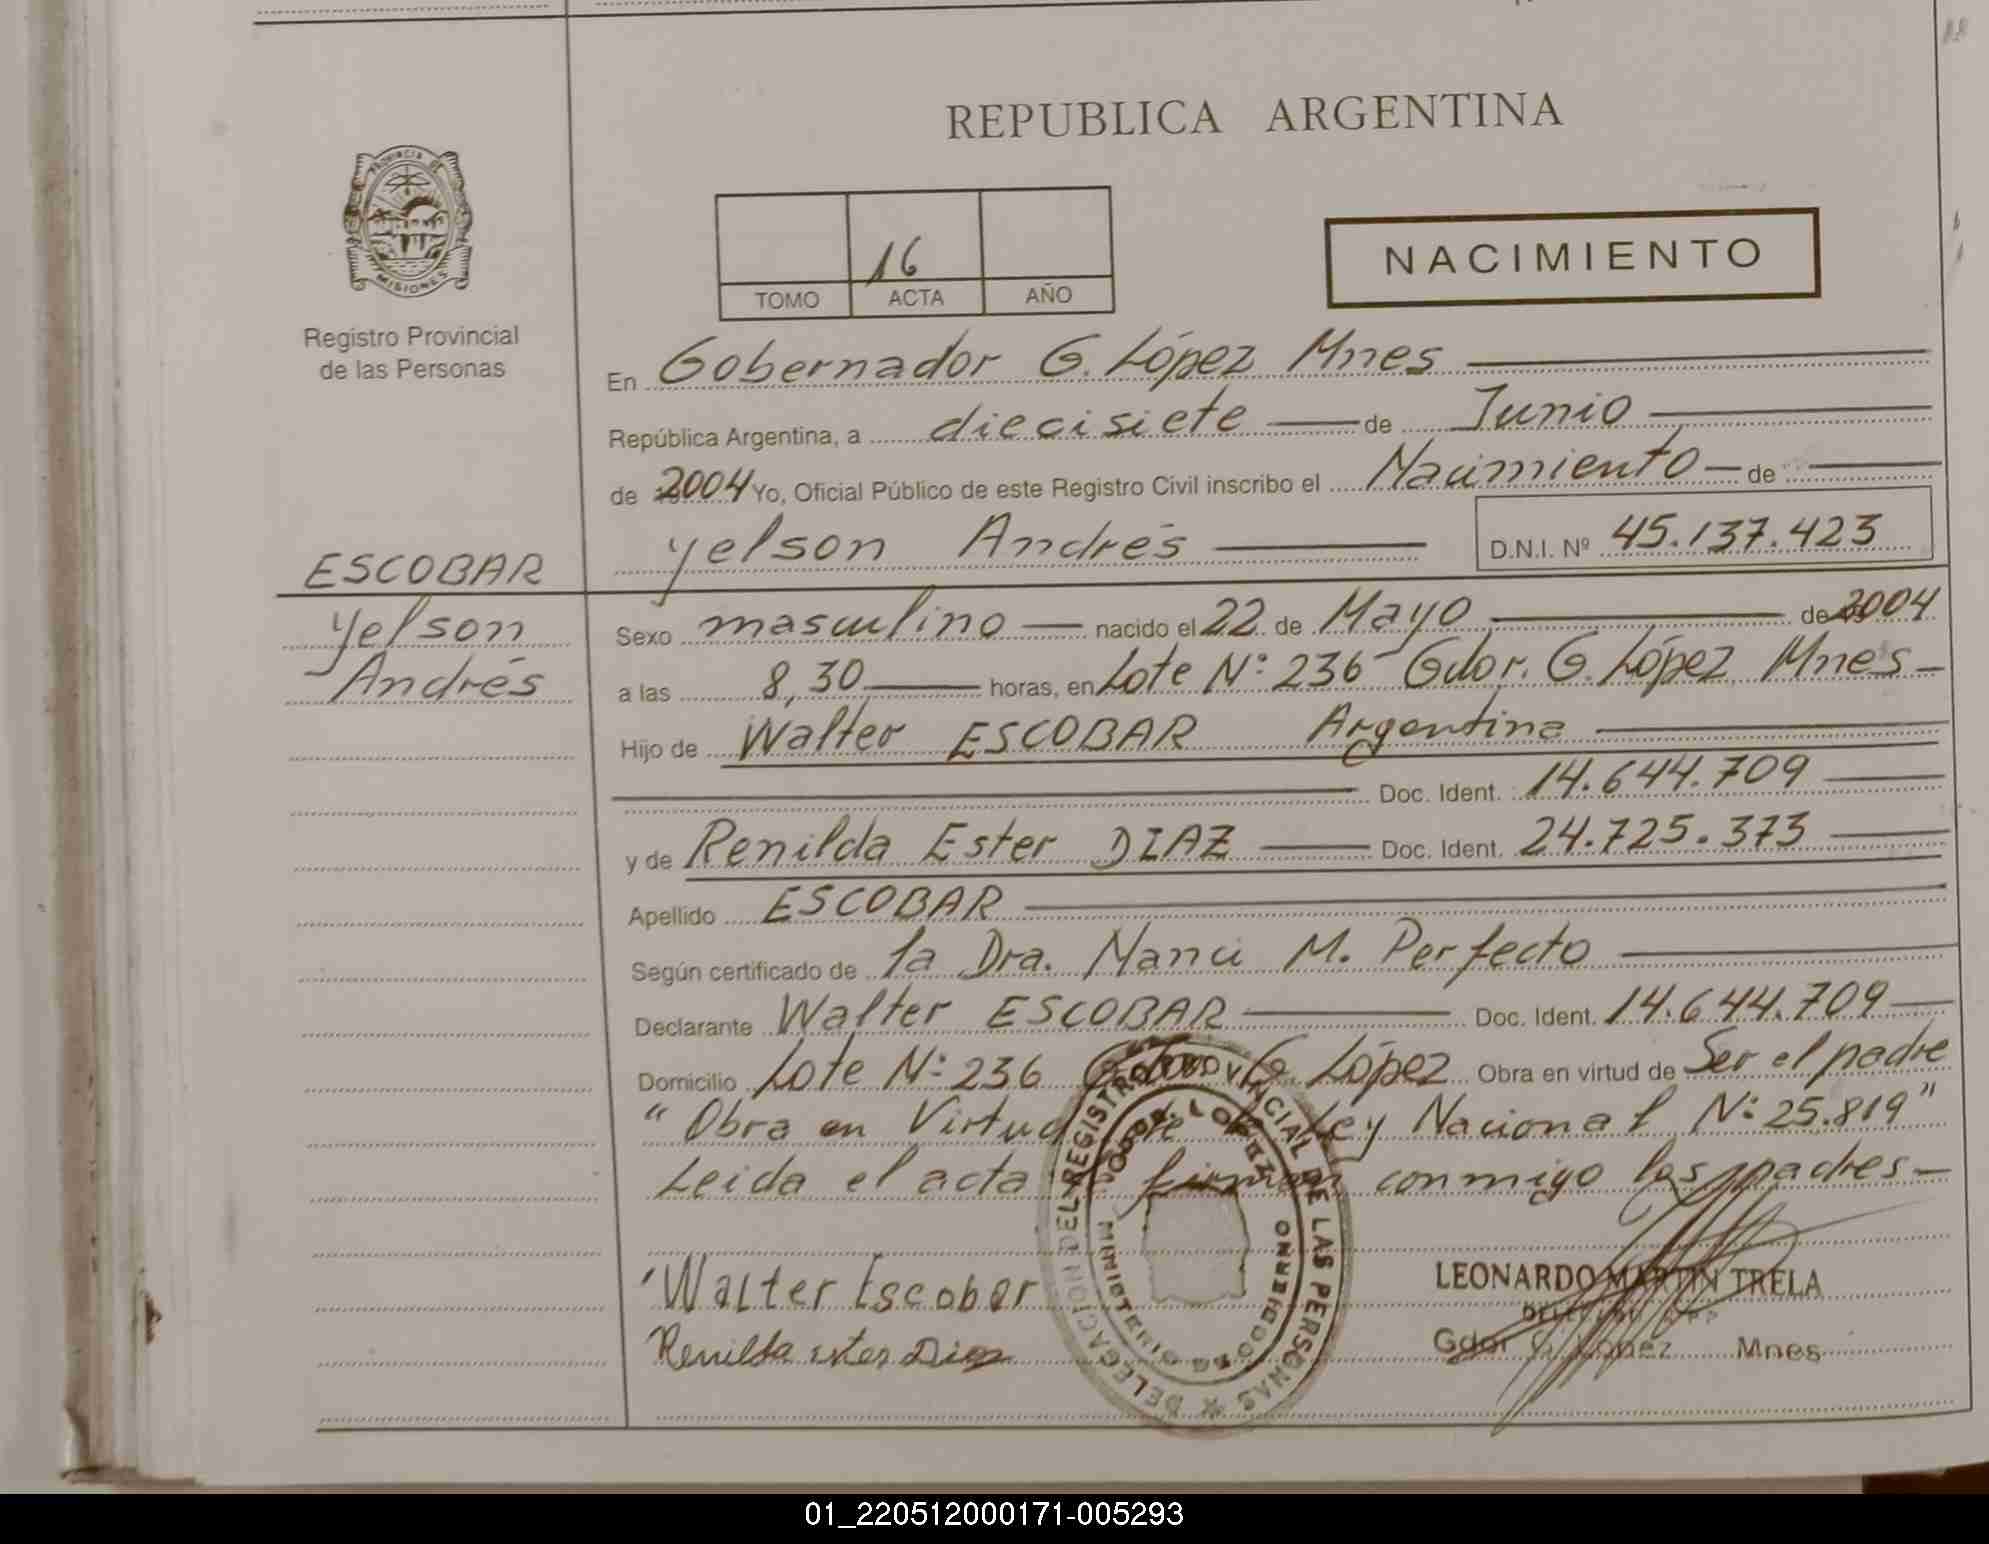 REPUBLICA ARGENTINA
PROVINCIA DE MISIONES
Registro Provincial
de las Personas
16
TOMO ACTA AÑO
NACIMIENTO
En Gobernador G. López Mnes
República Argentina, a diecisiete de Junio
de 2004 Yo, Oficial Público de este Registro Civil inscribo el Nacimiento de
Yelson Andrés D.N.I. Nº 45.137.423
ESCOBAR
Yelson
Andrés
Sexo masculino nacido el 22 de Mayo de 2004
a las 8,30 horas, en Lote Nº 236 Gdor. G. López Mnes
Hijo de Walter ESCOBAR Argentina
Doc. Ident. 14.644.709
y de Renilda Ester DIAZ Doc. Ident. 24.725.373
Apellido ESCOBAR
Según certificado de la Dra. Nanci M. Perfecto
Declarante Walter ESCOBAR Doc. Ident. 14.644.709
Domicilio Lote Nº 236 G. López Obra en virtud de Ser el padre
"Obra en Virtud de la Ley Nacional Nº 25.819"
Leida el acta firman conmigo los padres
Walter Escobar
Renilda ester Diaz
DELEGACION DEL REGISTRO PROVINCIAL DE LAS PERSONAS
LEONARDO MARTIN TRELA
Gdor G. López Mnes
01_220512000171-005293